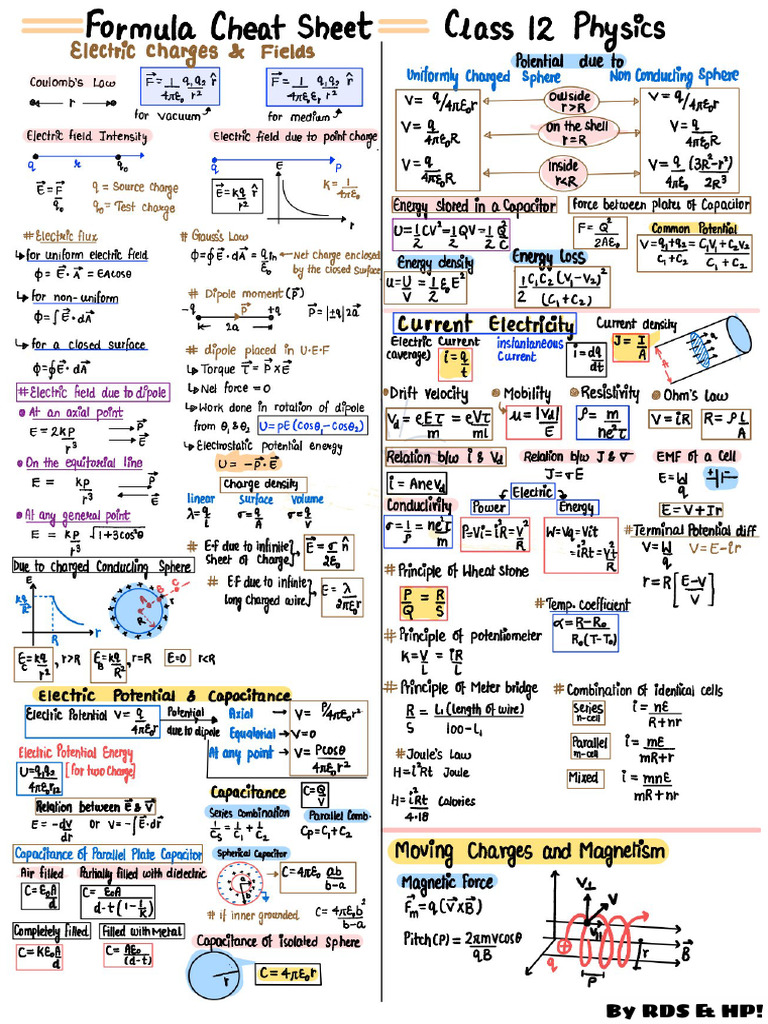 Formula Cheat Sheet
Class 12 Physics
Electric Charges & Fields
Coulomb's Law
F⃗ = 1/4πε₀ q₁q₂/r² r̂
for vacuum
F⃗ = 1/4πε₀εᵣ q₁q₂/r² r̂
for medium
r
Electric field Intensity
q r q₀
E⃗ = F⃗/q₀
q = Source charge
q₀ = Test charge
Electric field due to point charge
q P
E⃗ = kq/r² r̂
E
r
K = 1/4πε₀
# Electric flux
for uniform electric field
Φ = E⃗ · A⃗ = EA cosθ
for non-uniform
Φ = ∫ E⃗ · dA⃗
for a closed surface
Φ = ∮ E⃗ · dA⃗
# Electric field due to dipole
At an axial point
E = 2kp/r³
P⃗
E⃗
On the equitorial line
E = kp/r³
P⃗
E⃗
At any general point
E = kp/r³ √1+3cos²θ
# Gauss's Law
Φ = ∮ E⃗ · dA⃗ = qin/ε₀
Net charge enclosed
by the closed Surface
# Dipole moment (P⃗)
-q P⃗ +q
2a
P⃗ = |±q| 2a⃗
# dipole placed in U.E.F
Torque τ⃗ = P⃗ × E⃗
Net force = 0
Work done in rotation of dipole
from θ₁ & θ₂ U = PE (Cosθ₁ - Cosθ₂)
Electrostatic potential energy
U = - P⃗ · E⃗
Charge density
linear surface volume
λ = q/L σ = q/A σ = q/V
# E·f due to infinite
sheet of Charge
E⃗ = σ/2ε₀ n̂
# E·f due to infinite
long charged wire
E = λ/2πε₀r
Due to charged Conducting Sphere
E
kq/R²
R r
A B C
R
E_C = kq/r², r>R
E_B = kq/R², r=R
E=0 r<R
Electric Potential & Capacitance
Electric Potential V = q/4πε₀r
Potential
due to dipole
Axial V = P/4πε₀r²
Equatorial V = 0
At any point V = Pcosθ/4πε₀r²
Electric Potential Energy
U = q₁q₂/4πε₀r₁₂
[for two Charge]
Relation between E⃗ & V⃗
E = -dV/dr or V = -∫E⃗·dr⃗
Capacitance C = Q/V
Series Combination
1/Cs = 1/C₁ + 1/C₂
Parallel Comb·
Cp = C₁ + C₂
Capacitance of Parallel Plate Capacitor
Air filled
C = ε₀A/d
Partially filled with dielectric
C = ε₀A/d-t(1-1/K)
Completely filled
C = Kε₀A/d
Filled with Metal
C = Aε₀/(d-t)
Spherical Capacitor
a b
C = 4πε₀ ab/b-a
# if inner grounded C = 4πε₀b²/b-a
Capacitance of isolated sphere
r
C = 4πε₀r
Potential due to
Uniformly Charged Sphere
Non Conducting Sphere
V = q/4πε₀r
Outside r>R
V = q/4πε₀r
V = q/4πε₀R
On the shell r=R
V = q/4πε₀R
V = q/4πε₀R
Inside r<R
V = q/4πε₀ (3R²-r²)/2R³
Energy stored in a Capacitor
U = 1/2 CV² = 1/2 QV = 1/2 Q²/C
Force between plates of Capacitor
F = Q²/2Aε₀
Common Potential
V = q₁+q₂/C₁+C₂ = C₁V₁+C₂V₂/C₁+C₂
Energy density
u = U/V = 1/2 ε₀E²
Energy loss
1/2 C₁C₂(V₁-V₂)²/(C₁+C₂)
Current Electricity
Electric Current
(average) i = q/t
instantaneous
Current i = dq/dt
Current density
J = I/A
Drift Velocity
Vd = eEτ/m = eVτ/ml
Mobility
μ = |Vd|/E
Resistivity
ρ = m/ne²τ
Ohm's Law
V = iR R = ρL/A
Relation b/w i & Vd
i = AneVd
Relation b/w J & σ
J = σE
EMF of a Cell
E = W/q
E = V + Ir
Conductivity
σ = 1/ρ = ne²τ/m
Electric
Power
P = Vi = i²R = V²/R
Energy
W = Vq = Vit
= i²Rt = V²t/R
# Terminal Potential diff
V = W/q V = E - ir
r = R [E-V/V]
# Principle of Wheat stone
P/Q = R/S
# Temp. Coefficient
α = R-R₀/R₀(T-T₀)
# Principle of potentiometer
K = V/L = iR/L
# Principle of Meter bridge
R/S = L₁ (length of wire)/100-L₁
# Combination of identical cells
Series
n-cell
i = nE/R+nr
Parallel
m-cell
i = mE/mR+r
Mixed
i = mnE/mR+nr
# Joule's Law
H = i²Rt Joule
H = i²Rt/4·18 Calories
Moving Charges and Magnetism
Magnetic Force
F⃗m = q(V⃗×B⃗)
Pitch (P) = 2πmvcosθ/qB
V⊥ V
V||
q
P
r
B⃗
By RDS & HP!